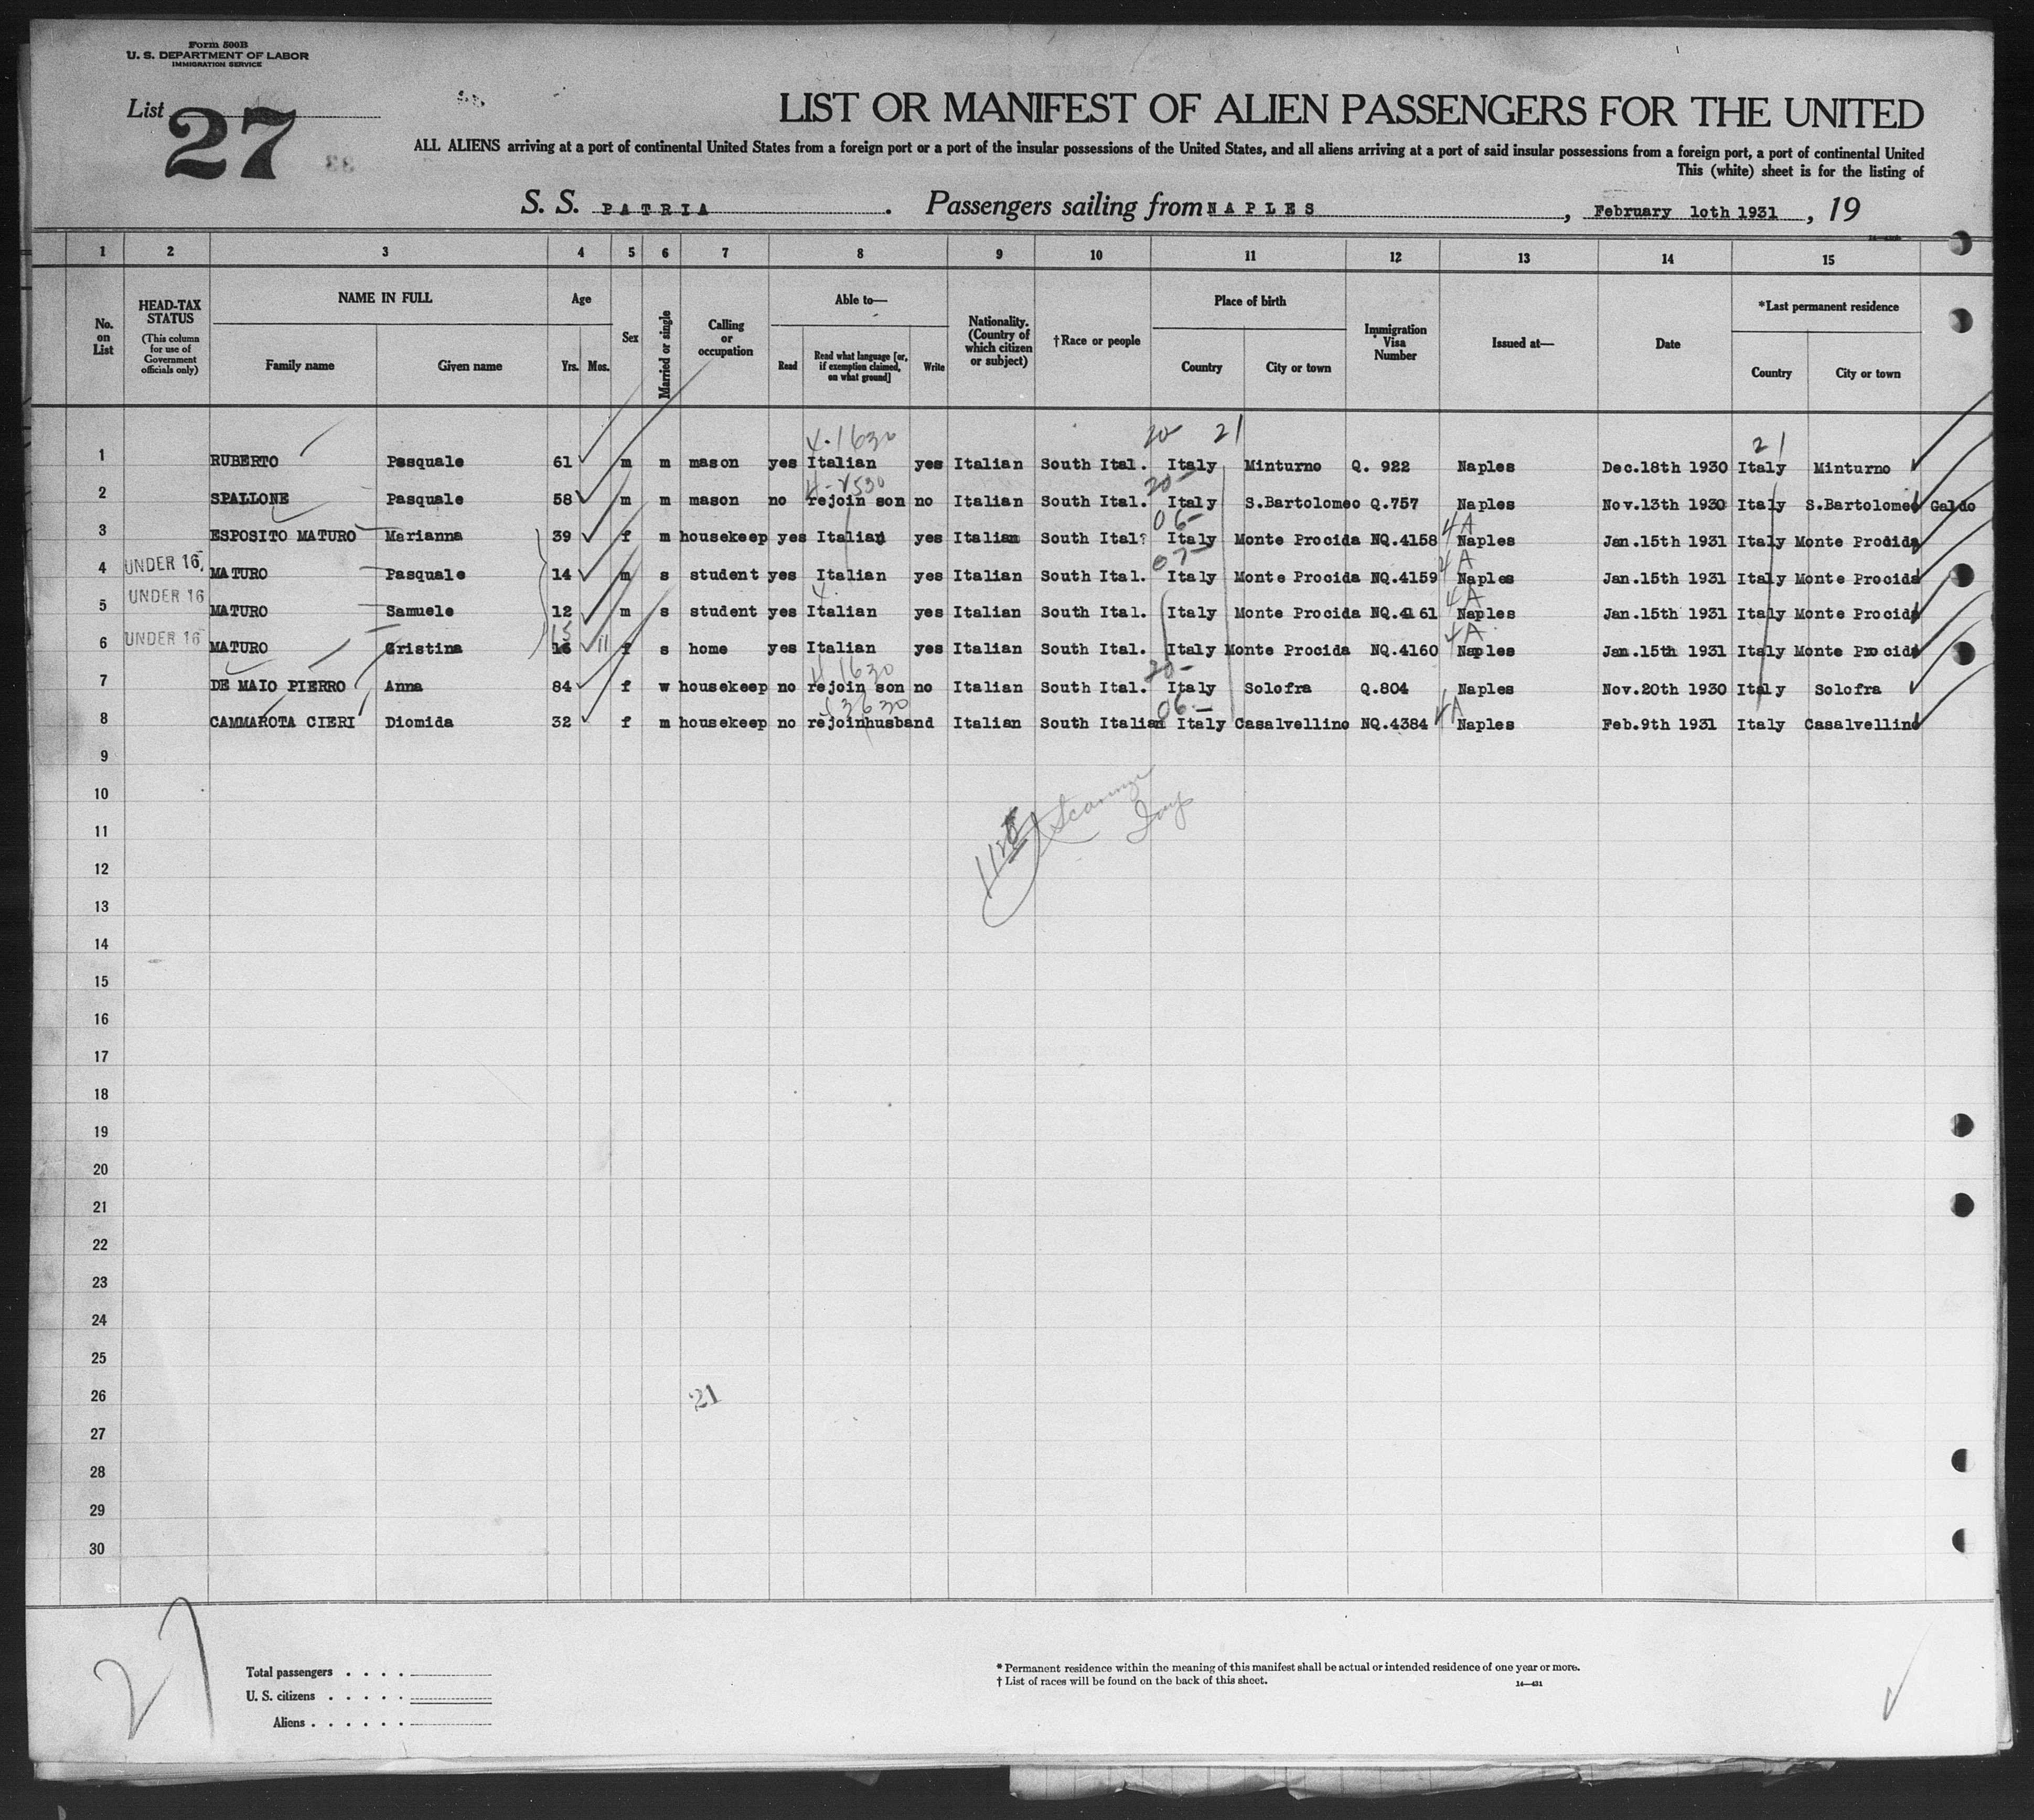 Form 500B
U. S. DEPARTMENT OF LABOR
IMMIGRATION SERVICE
List 27
LIST OR MANIFEST OF ALIEN PASSENGERS FOR THE UNITED
ALL ALIENS arriving at a port of continental United States from a foreign port or a port of the insular possessions of the United States, and all aliens arriving at a port of said insular possessions from a foreign port, a port of continental United
This (white) sheet is for the listing of
S. S. PATRIA . Passengers sailing from NAPLES , February 10th 1931 , 19
1 2 3 4 5 6 7 8 9 10 11 12 13 14 15
No. on List
HEAD-TAX STATUS
(This column for use of Government officials only)
NAME IN FULL
Family name Given name
Age
Yrs. Mos.
Sex
Married or single
Calling or occupation
Able to—
Read
Read what language [or, if exemption claimed, on what ground]
Write
Nationality. (Country of which citizen or subject)
†Race or people
Place of birth
Country City or town
Immigration Visa Number
Issued at—
Date
*Last permanent residence
Country City or town
4-1630 20- 21 21
1 RUBERTO Pasquale 61 m m mason yes Italian yes Italian South Ital. Italy Minturno Q. 922 Naples Dec.18th 1930 Italy Minturno
20-
2 SPALLONE Pasquale 58 m m mason no rejoin son no Italian South Ital. Italy S.Bartolomeo Q.757 Naples Nov.13th 1930 Italy S.Bartolomeo Galdo
06- 4A
3 ESPOSITO MATURO Marianna 39 f m housekeep yes Italian yes Italian South Ital. Italy Monte Procida NQ.4158 Naples Jan.15th 1931 Italy Monte Procida
07- 4A
4 UNDER 16 MATURO Pasquale 14 m s student yes Italian yes Italian South Ital. Italy Monte Procida NQ.4159 Naples Jan.15th 1931 Italy Monte Procida
4 4A
5 UNDER 16 MATURO Samuele 12 m s student yes Italian yes Italian South Ital. Italy Monte Procida NQ.4161 Naples Jan.15th 1931 Italy Monte Procida
15 4A
6 UNDER 16 MATURO Cristina 16 11 f s home yes Italian yes Italian South Ital. Italy Monte Procida NQ.4160 Naples Jan.15th 1931 Italy Monte Procida
4 1630 20-
7 DE MAIO PIERRO Anna 84 f w housekeep no rejoin son no Italian South Ital. Italy Solofra Q.804 Naples Nov.20th 1930 Italy Solofra
3630 06- 4A
8 CAMMAROTA CIERI Diomida 32 f m housekeep no rejoinhusband Italian South Italian Italy Casalvellino NQ.4384 Naples Feb.9th 1931 Italy Casalvellino
9
10
11
12
13
14
15
16
17
18
19
20
21
22
23
24
25
26 21
27
28
29
30
27
Total passengers . . . .
U. S. citizens . . . . .
Aliens . . . . . .
* Permanent residence within the meaning of this manifest shall be actual or intended residence of one year or more.
† List of races will be found on the back of this sheet.
14—431